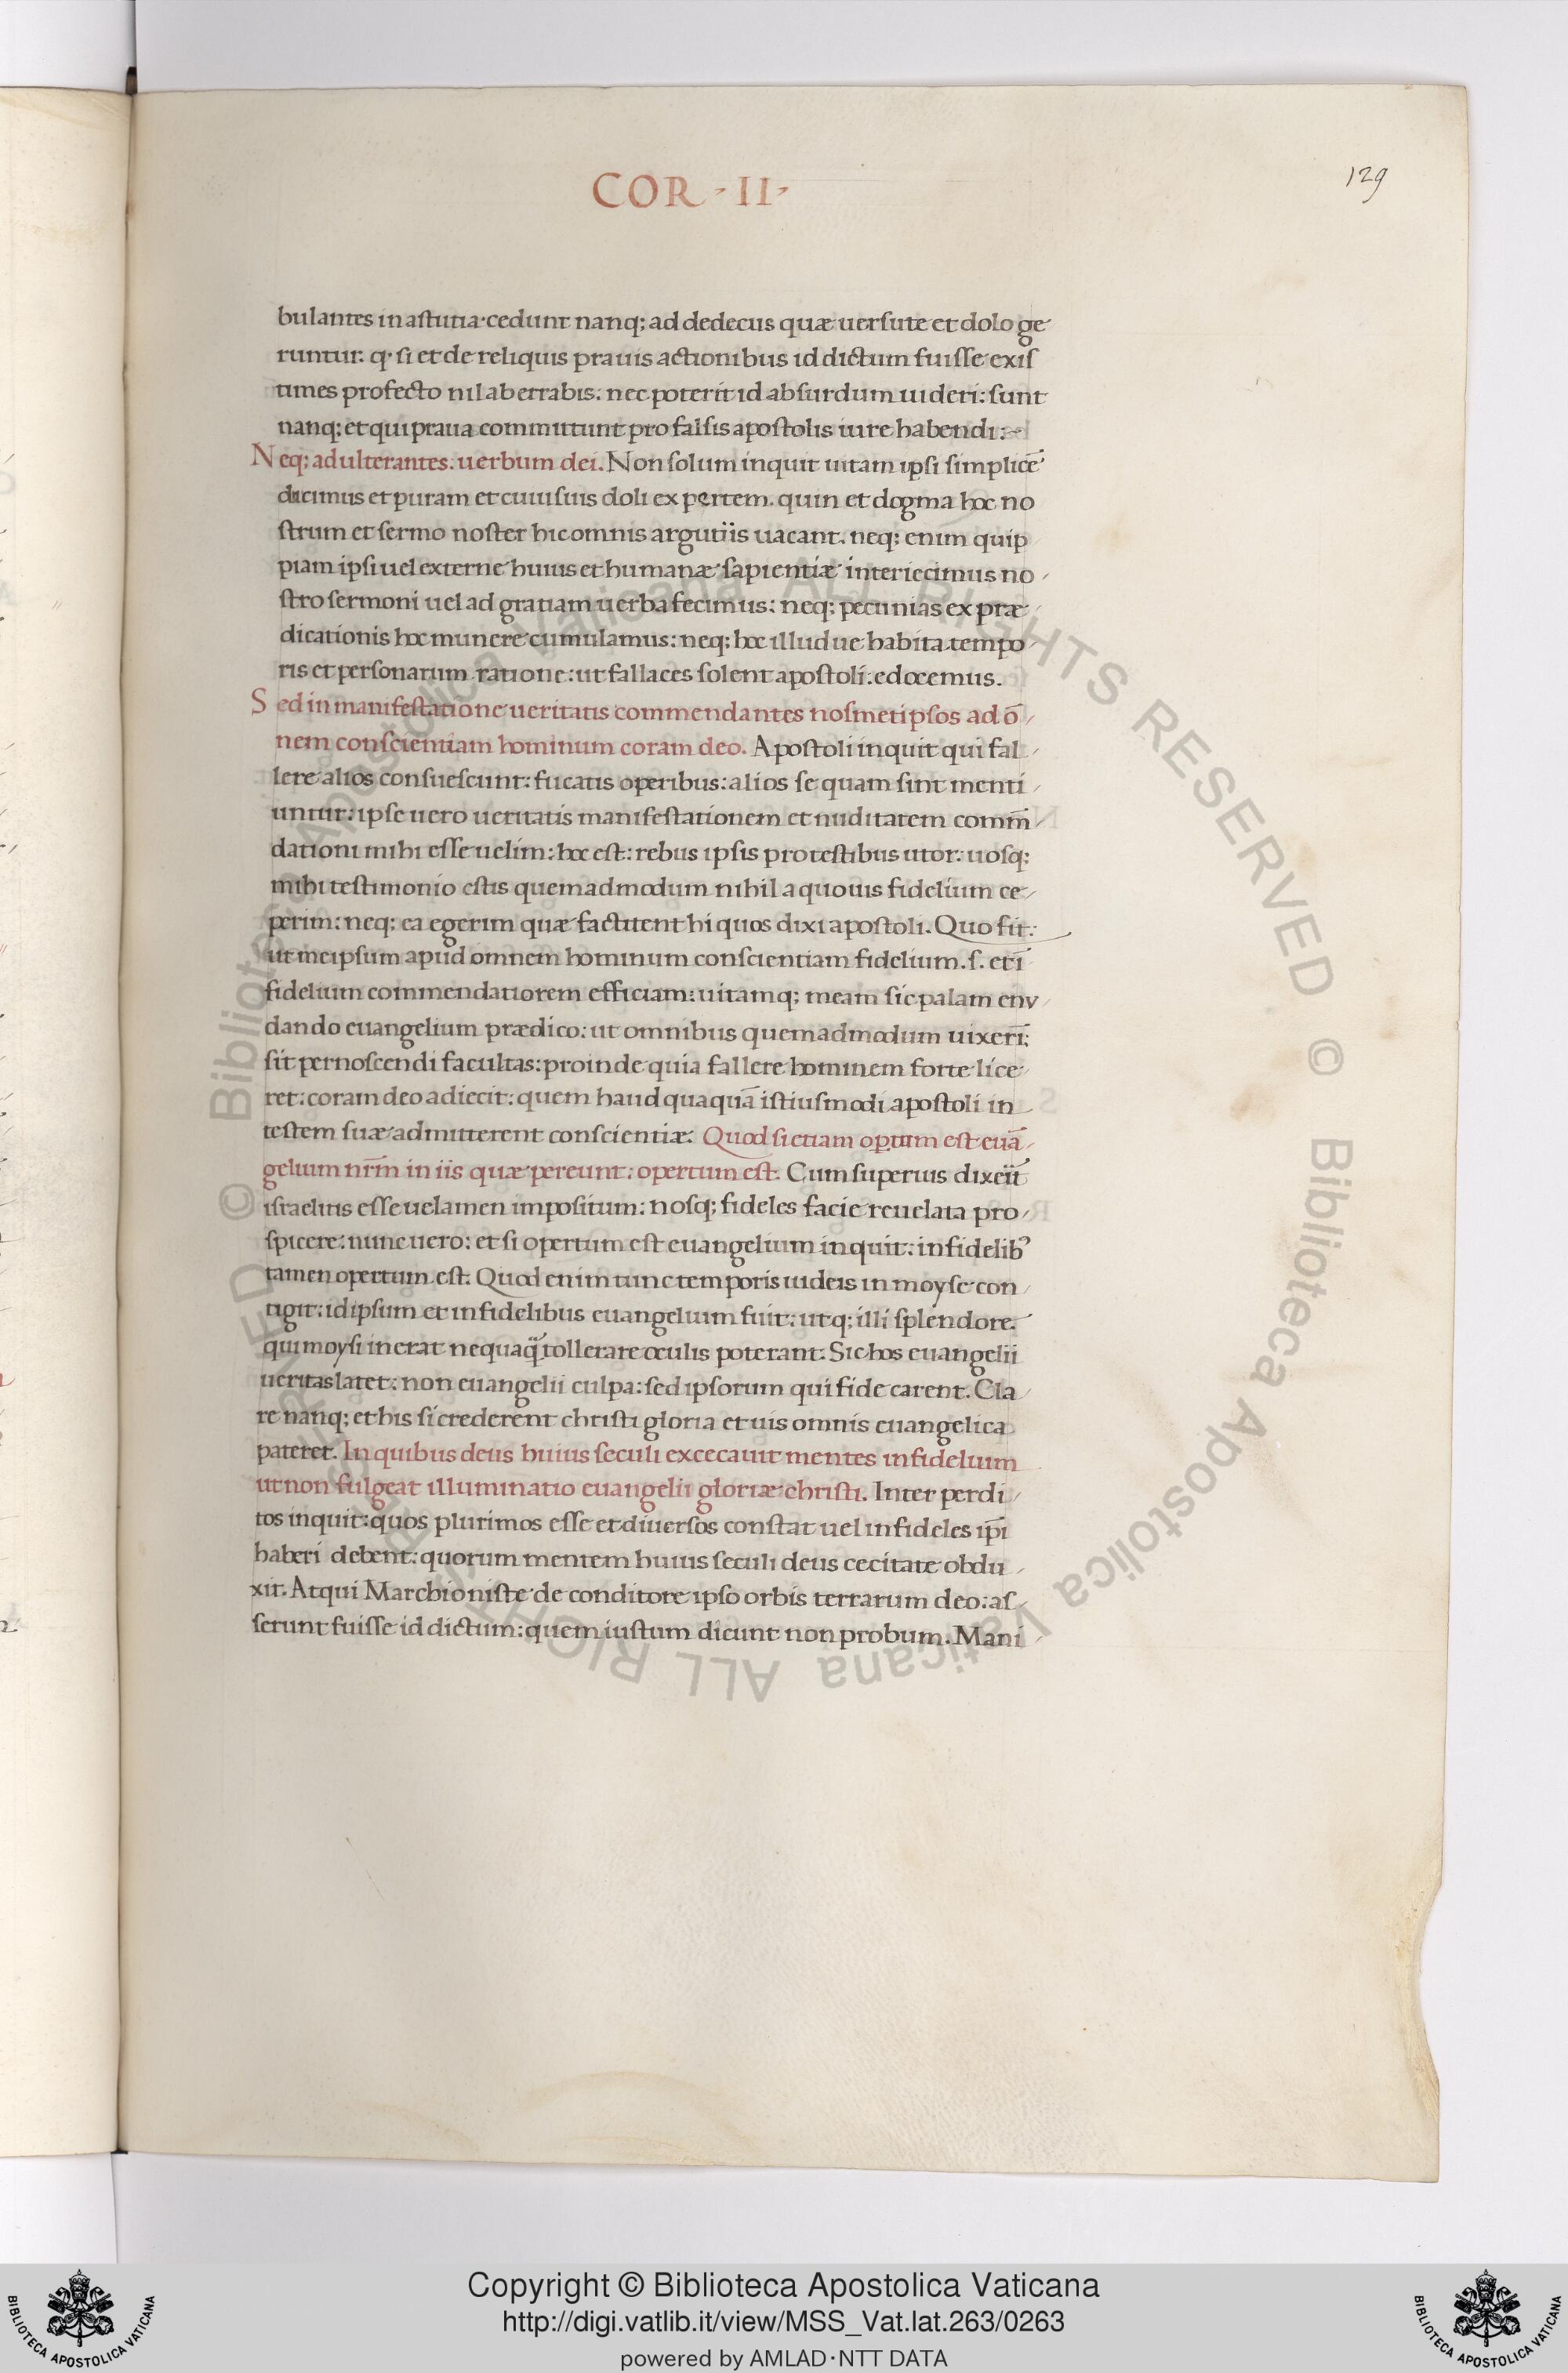 COR · II ·
129
bulantes in astutia · cedunt nanq; ad dedecus quæ uersute et dolo ge
runtur: q · si et de reliquis prauis actionibus id dictum fuisse exis
times profecto nil aberrabis: nec poterit id absurdum uideri: sunt
nanq; et qui praua committunt pro falsis apostolis iure habendi:~
Neq; adulterantes. uerbum dei. Non solum inquit uitam ipsi simplicē
ducimus et puram et cuiusuis doli expertem. quin et dogma hoc no
strum et sermo noster hic omnis argutiis uacant. neq; enim quip
piam ipsi uel externe huius et humanæ sapientiæ interiecimus no
stro sermoni uel ad gratiam uerba fecimus: neq; pecunias ex præ
dicationis hoc munere cumulamus: neq; hoc illud ue habita tempo
ris et personarum ratione: ut fallaces solent apostoli. edocemus.
Sed in manifestatione ueritatis commendantes nosmetipsos ad ō
nem conscientiam hominum coram deo. Apostoli inquit qui fal
lere alios consuescunt: fucatis operibus: alios se quam sint menti
untur: ipse uero ueritatis manifestationem et nuditatem comm̄
dationi mihi esse uelim: hoc est: rebus ipsis pro testibus utor: uosq;
mihi testimonio estis quemadmodum nihil a quouis fidelium ce
perim: neq; ea egerim quæ factitent hi quos dixi apostoli. Quo fit:
ut meipsum apud omnem hominum conscientiam fidelium. s. et ī
fidelium commendatiorem efficiam: uitamq; meam sic palam enu
dando euangelium prædico: ut omnibus quemadmodum uixeri̅:
sit pernoscendi facultas: proinde quia fallere hominem forte lice
ret: coram deo adiecit: quem haud quaquā istiusmodi apostoli in
testem suæ admitterent conscientiæ. Quod si etiam optum est euā
gelium nr̄m in iis quæ pereunt: opertum est. Cum superius dixeīt
israelitis esse uelamen impositum: nosq; fideles facie reuelata pro
spicere: nunc uero: et si opertum est euangelium inquit: infidelib'
tamen opertum est. Quod enim tunc temporis iudeis in moyse con
tigit: id ipsum et infidelibus euangelium fuit: utq; illi splendore.
qui moysi inerat nequaq̄ tollerare oculis poterant: Sic hos euangelii
ueritas latet: non euangelii culpa: sed ipsorum qui fide carent. Cla
re nanq; et his si crederent christi gloria et uis omnis euangelica
pateret. In quibus deus huius seculi excecauit mentes infidelium
ut non fulgeat illuminatio euangelii gloriæ christi. Inter perdi
tos inquit: quos plurimos esse et diuersos constat uel infideles ip̄i
haberi debent: quorum mentem huius seculi deus cecitate obdu
xit. Atqui Marchioniste de conditore ipso orbis terrarum deo: as
serunt fuisse id dictum: quem iustum dicunt non probum. Mani
© Biblioteca Apostolica Vaticana ALL RIGHTS RESERVED © Biblioteca Apostolica Vaticana ALL RIGHTS RESERVED
Copyright © Biblioteca Apostolica Vaticana
http://digi.vatlib.it/view/MSS_Vat.lat.263/0263
powered by AMLAD·NTT DATA
BIBLIOTECA APOSTOLICA VATICANA
BIBLIOTECA APOSTOLICA VATICANA